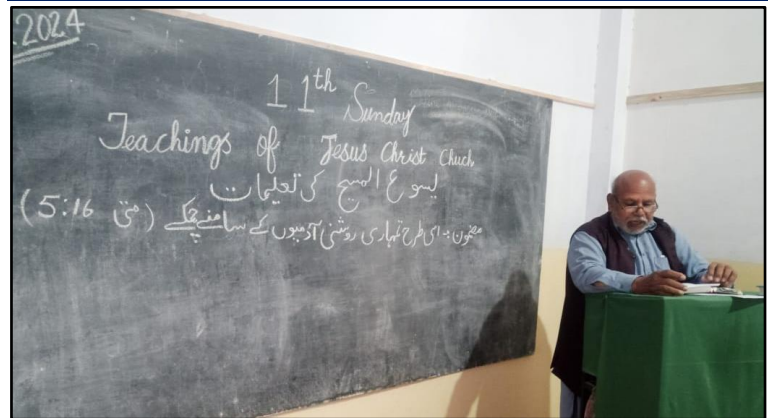 .2024
11th Sunday
Teachings of Jesus Christ Chuch
یسوع المسیح کی تعلیمات
مضمون :۔ اسی طرح تمہاری روشنی آدمیوں کے سامنے چمکے (متی 5:16)